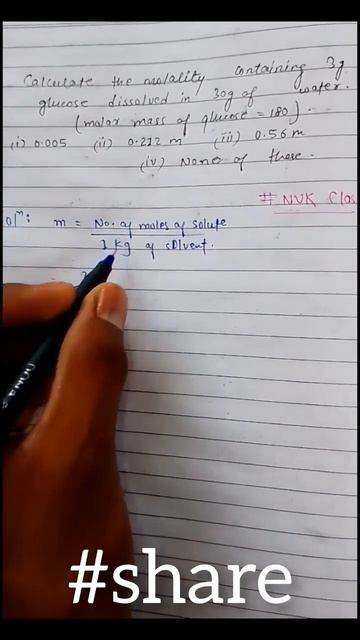 Calculate the molality containing 3g
glucose dissolved in 30g of water.
(molar mass of glucose = 180)
(i) 0.005 (ii) 0.212 m (iii) 0.56 m
(iv) None of these.
# NVK Clas
olⁿ: m = No. of moles of solute
1 kg of solvent.
#share